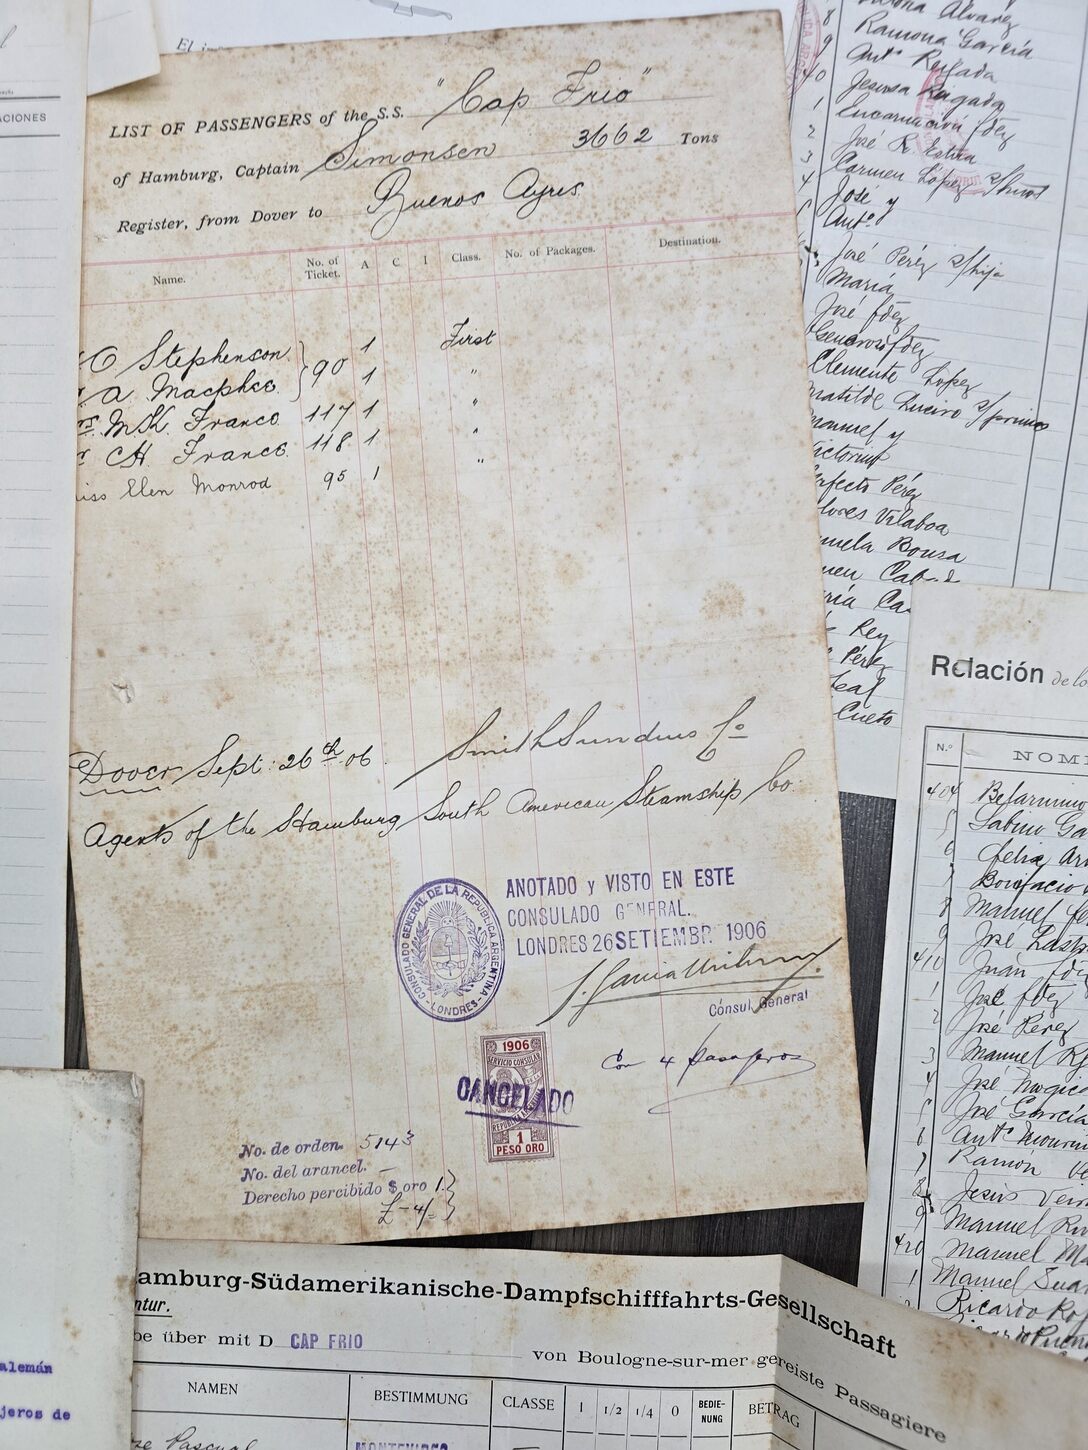 El
ACIONES
LIST OF PASSENGERS of the S.S. "Cap Frio"
of Hamburg, Captain Simonsen 3662 Tons
Register, from Dover to Buenos Ayres
Name. No. of Ticket. A C I Class. No. of Packages. Destination.
C Stephenson } 90 1 First
A Macphee 1 "
M.K. Franco 117 1 "
CH Franco 118 1 "
iss Elen Monrod 95 1 "
Dover Sept: 26th 06. Smith Sundius Co
Agents of the Hamburg South American Steamship Co.
CONSULADO GENERAL DE LA REPUBLICA ARGENTINA - LONDRES -
ANOTADO y VISTO EN ESTE
CONSULADO GENERAL.
LONDRES 26 SETIEMBR. 1906
Cónsul General
Con 4 pasajeros
1906
SERVICIO CONSULAR
CANCELADO
1
PESO ORO
No. de orden. 5143
No. del arancel. —
Derecho percibido $ oro 1. }
£ -4/= }
Alvarez
8 Ramona García
9 Antº Reigada
40 Jesusa Reigada
1 Encarnación fdez
2 José R.
3 Carmen López
4 José y
Antº
José Pérez s/hija
María
José fdez
Generoso fdez
Clemente López
Matilde s/primos
manuel y
ictorino
rfecto Pérez
lores Vilaboa
nuela Bousa
men
ría Ca
Rey
Pérez
leal
Cueto
Relación de lo
N.º NOM
404 Belarmino
5 Sabino Ga
6 felix
7 Bonifacio
8 Manuel
9 José
410 Juan fdez
1 José fdez
2 José Pérez
3 Manuel
4 José
5 José García
6 Antº
7 Ramón
8 Jesús
9 Manuel
420 Manuel
1 Manuel Suar
Ricardo
amburg-Südamerikanische-Dampfschifffahrts-Gesellschaft
ntur.
be über mit D CAP FRIO von Boulogne-sur-mer gereiste Passagiere
NAMEN BESTIMMUNG CLASSE 1 1/2 1/4 0 BEDIE-NUNG BETRAG
Pascual MONTEVIDEO
alemán
jeros de